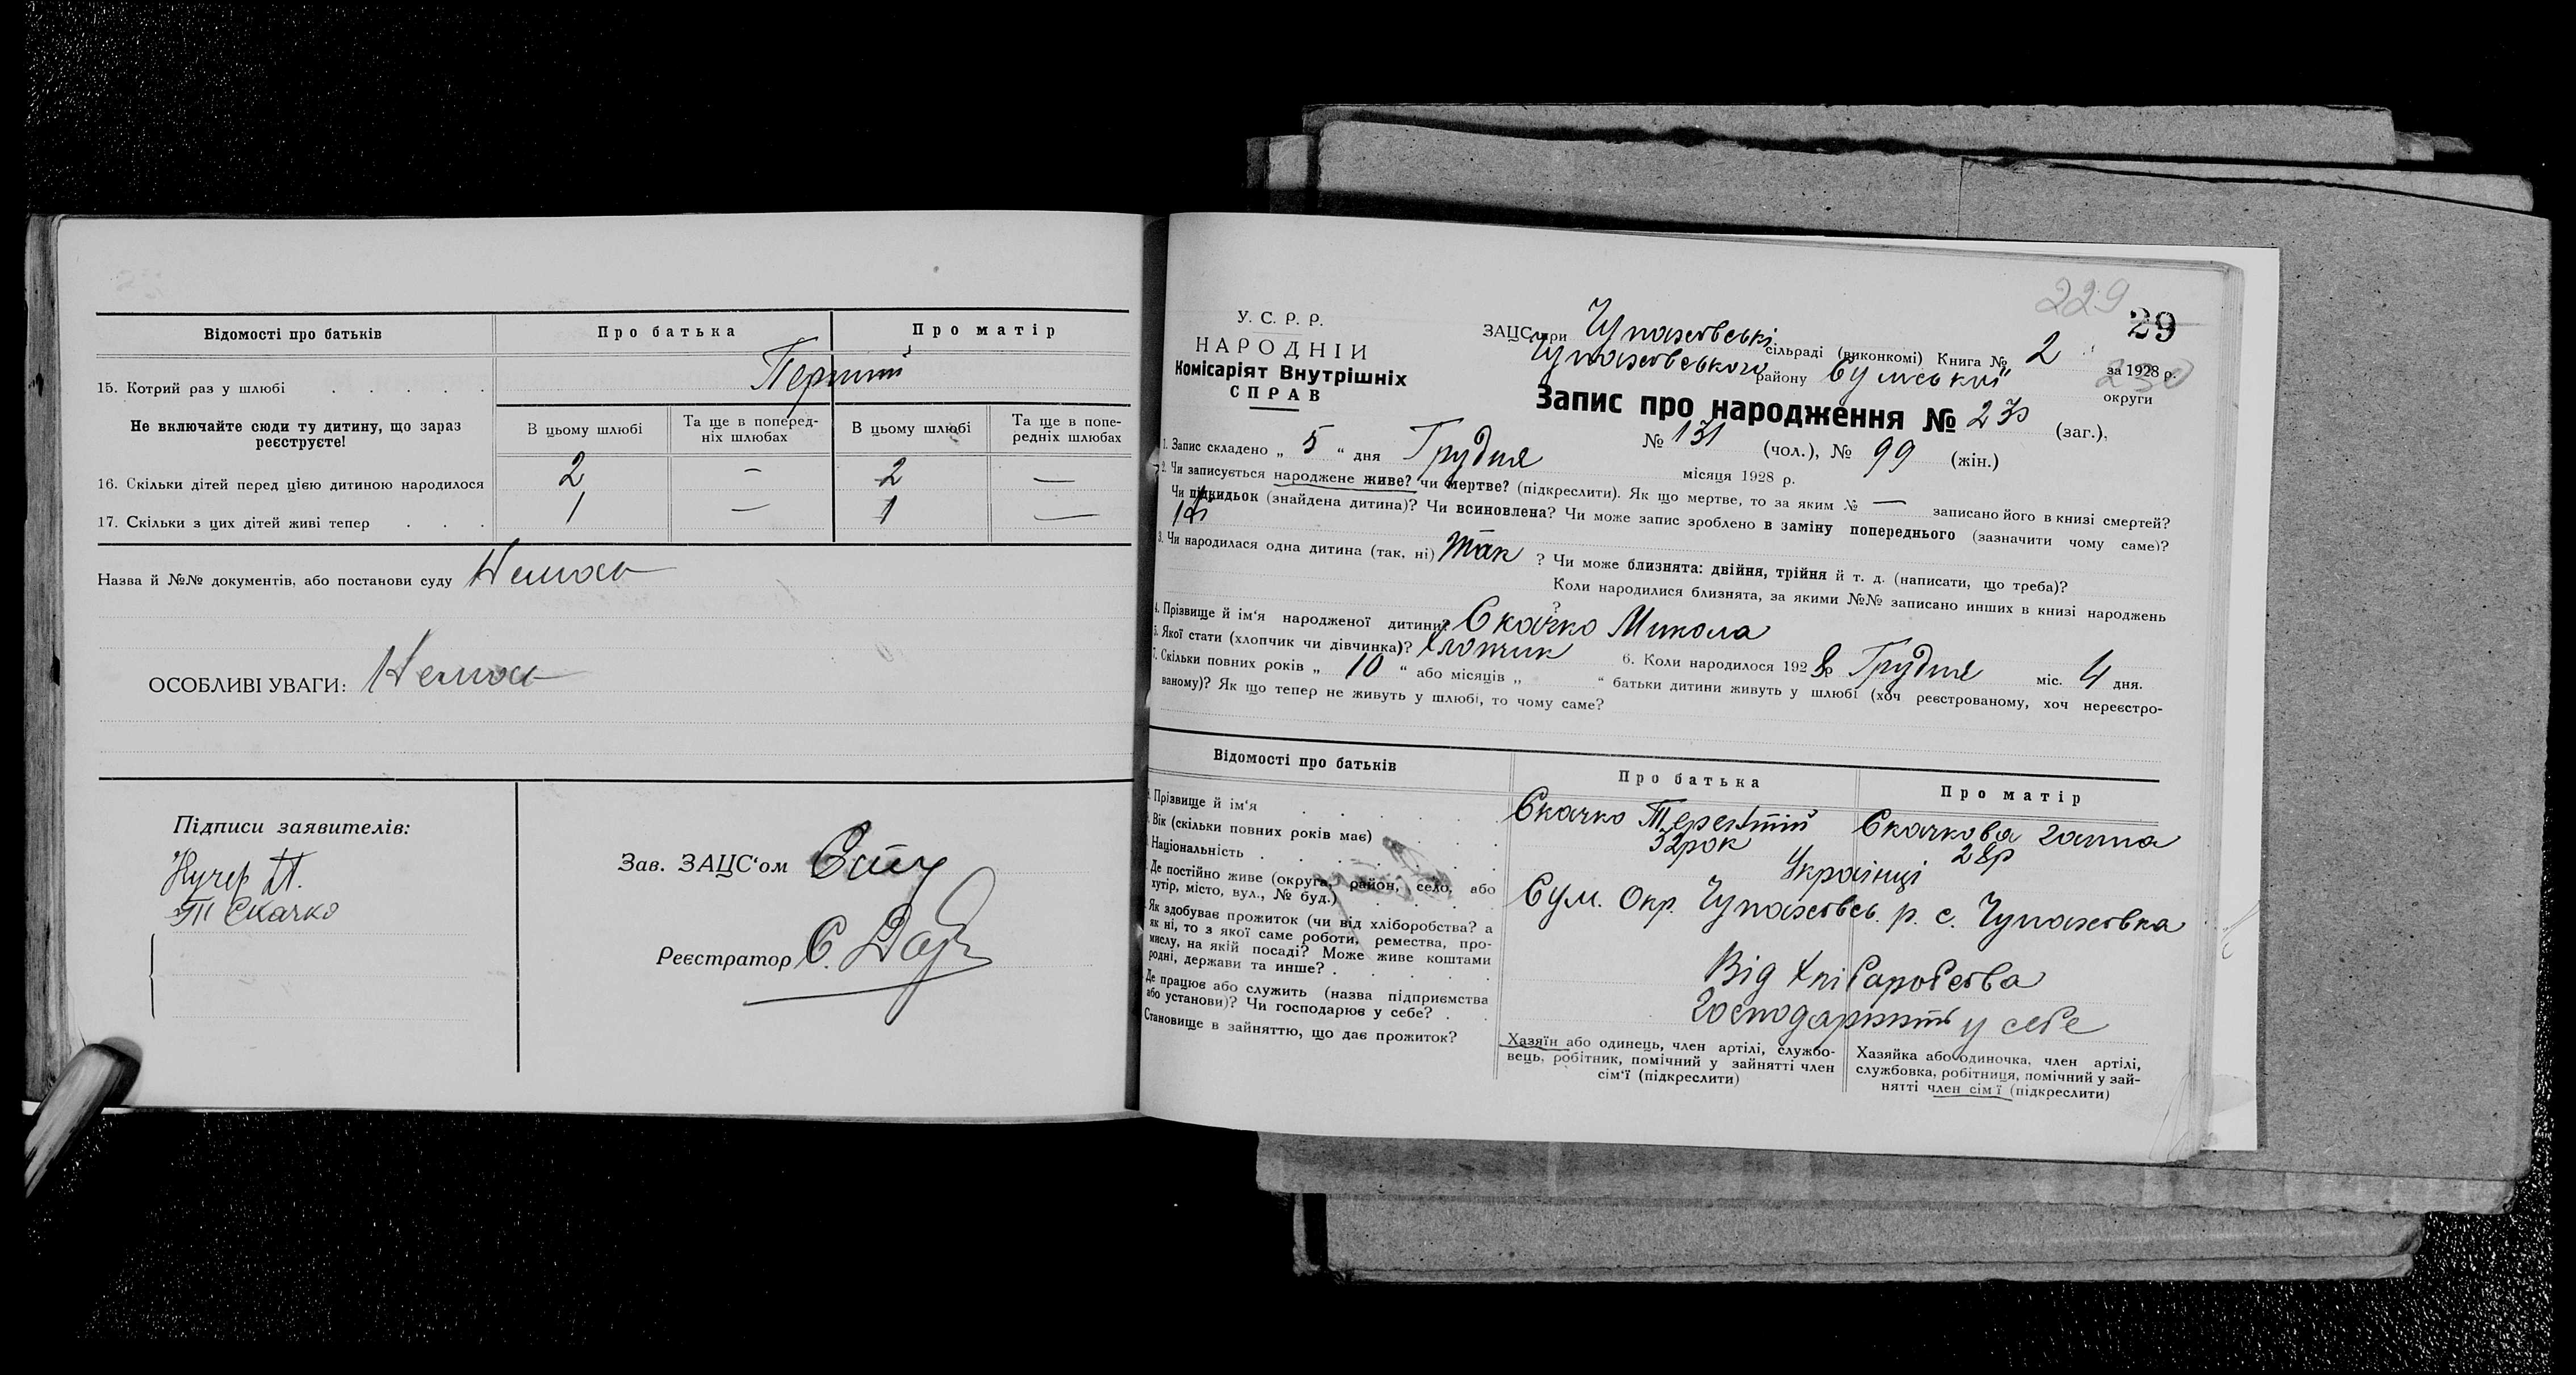 Відомості про батьків
Про батька
Про матір
15. Котрий раз у шлюбі
Перший
Не включайте сюди ту дитину, що зараз реєструєте!
В цьому шлюбі
Та ще в поперед-
ніх шлюбах
В цьому шлюбі
Та ще в попе-
редніх шлюбах
16. Скільки дітей перед цією дитиною народилося 2 — 2 —
17. Скільки з цих дітей живі тепер 1 — 1 —
Назва й №№ документів, або постанови суду Немає
ОСОБЛИВІ УВАГИ: Немає
Підписи заявителів:
Кучер П.
Т Скачко
Зав. ЗАЦС'ом
Реєстратор С.
229
29
У. С. Р. Р.
НАРОДНІЙ
Комісаріят Внутрішніх
СПРАВ
ЗАЦС при Чупахівські сільраді (виконкомі) Книга № 2 за 1928 р.
Чупахівського району Сумський округи
230
Запис про народження № 230 (заг.),
№ 131 (чол.), № 99 (жін.)
1. Запис складено „ 5 “ дня Грудня місяця 1928 р.
2. Чи записується народжене живе? чи мертве? (підкреслити). Як що мертве, то за яким № — записано його в книзі смертей?
Чи підкидьок (знайдена дитина)? Чи всиновлена? Чи може запис зроблено в заміну попереднього (зазначити чому саме)?
3. Чи народилася одна дитина (так, ні) Так ? Чи може близнята: двійня, трійня й т. д. (написати, що треба)?
Коли народилися близнята, за якими №№ записано инших в книзі народжень
?
4. Прізвище й ім'я народженої дитини? Скачко Микола
5. Якої стати (хлопчик чи дівчинка)? Хлопчик 6. Коли народилося 1928р Грудня міс. 4 дня.
7. Скільки повних років „ 10 “ або місяців „ “ батьки дитини живуть у шлюбі (хоч реєстрованому, хоч нереєстро-
ваному)? Як що тепер не живуть у шлюбі, то чому саме?
Відомості про батьків
Про батька
Про матір
Прізвище й ім'я
Скачко Терентій
Скачкова Ганна
Вік (скільки повних років має)
32рок
28р
Національність
Українці
Де постійно живе (округа, район, село, або
хутір, місто, вул., № буд.)
Сум. Окр. Чупахівсь. р. с. Чупахівка
Як здобуває прожиток (чи від хліборобства? а
як ні, то з якої саме роботи, ремества, про-
мислу, на якій посаді? Може живе коштами
родні, держави та инше?
Від хліборобства
Де працює або служить (назва підприємства
або установи)? Чи господарює у себе?
Господарюють у себе
Становище в зайняттю, що дає прожиток?
Хазяїн або одинець, член артілі, службо-
вець, робітник, помічний у зайнятті член
сім'ї (підкреслити)
Хазяйка або одиночка, член артілі,
службовка, робітниця, помічний у зай-
нятті член сім'ї (підкреслити)